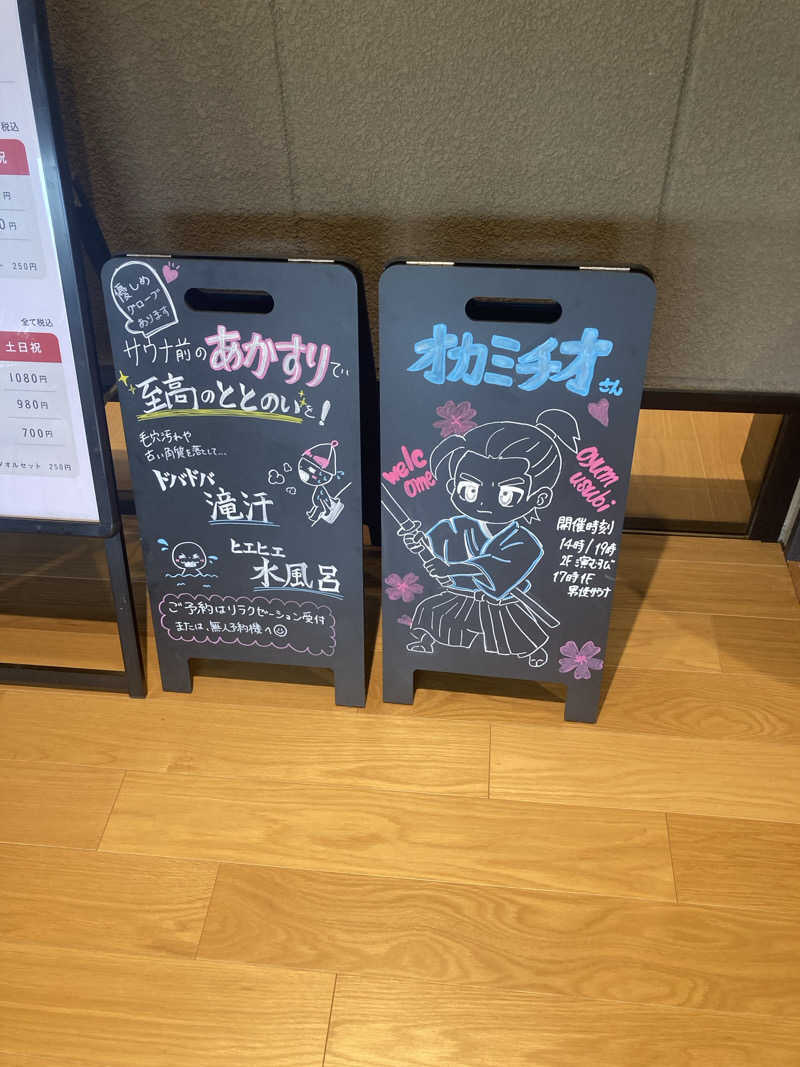 税込
祝
円
0円
250円
全て税込
土日祝
1080円
980円
700円
タオルセット 250円
優しめ
グローブ
あります
サウナ前のあかすりで
至高のととのいを!
毛穴汚れや
古い角質を落として...
ドバドバ
滝汗
ヒエヒエ
水風呂
ご予約はリラクゼーション受付
または、無人予約機へ
オカミチオさん
welc
ome!
oyum
usubi
開催時刻
14時/19時
2F 湯むすび
17時 1F
男性サウナ